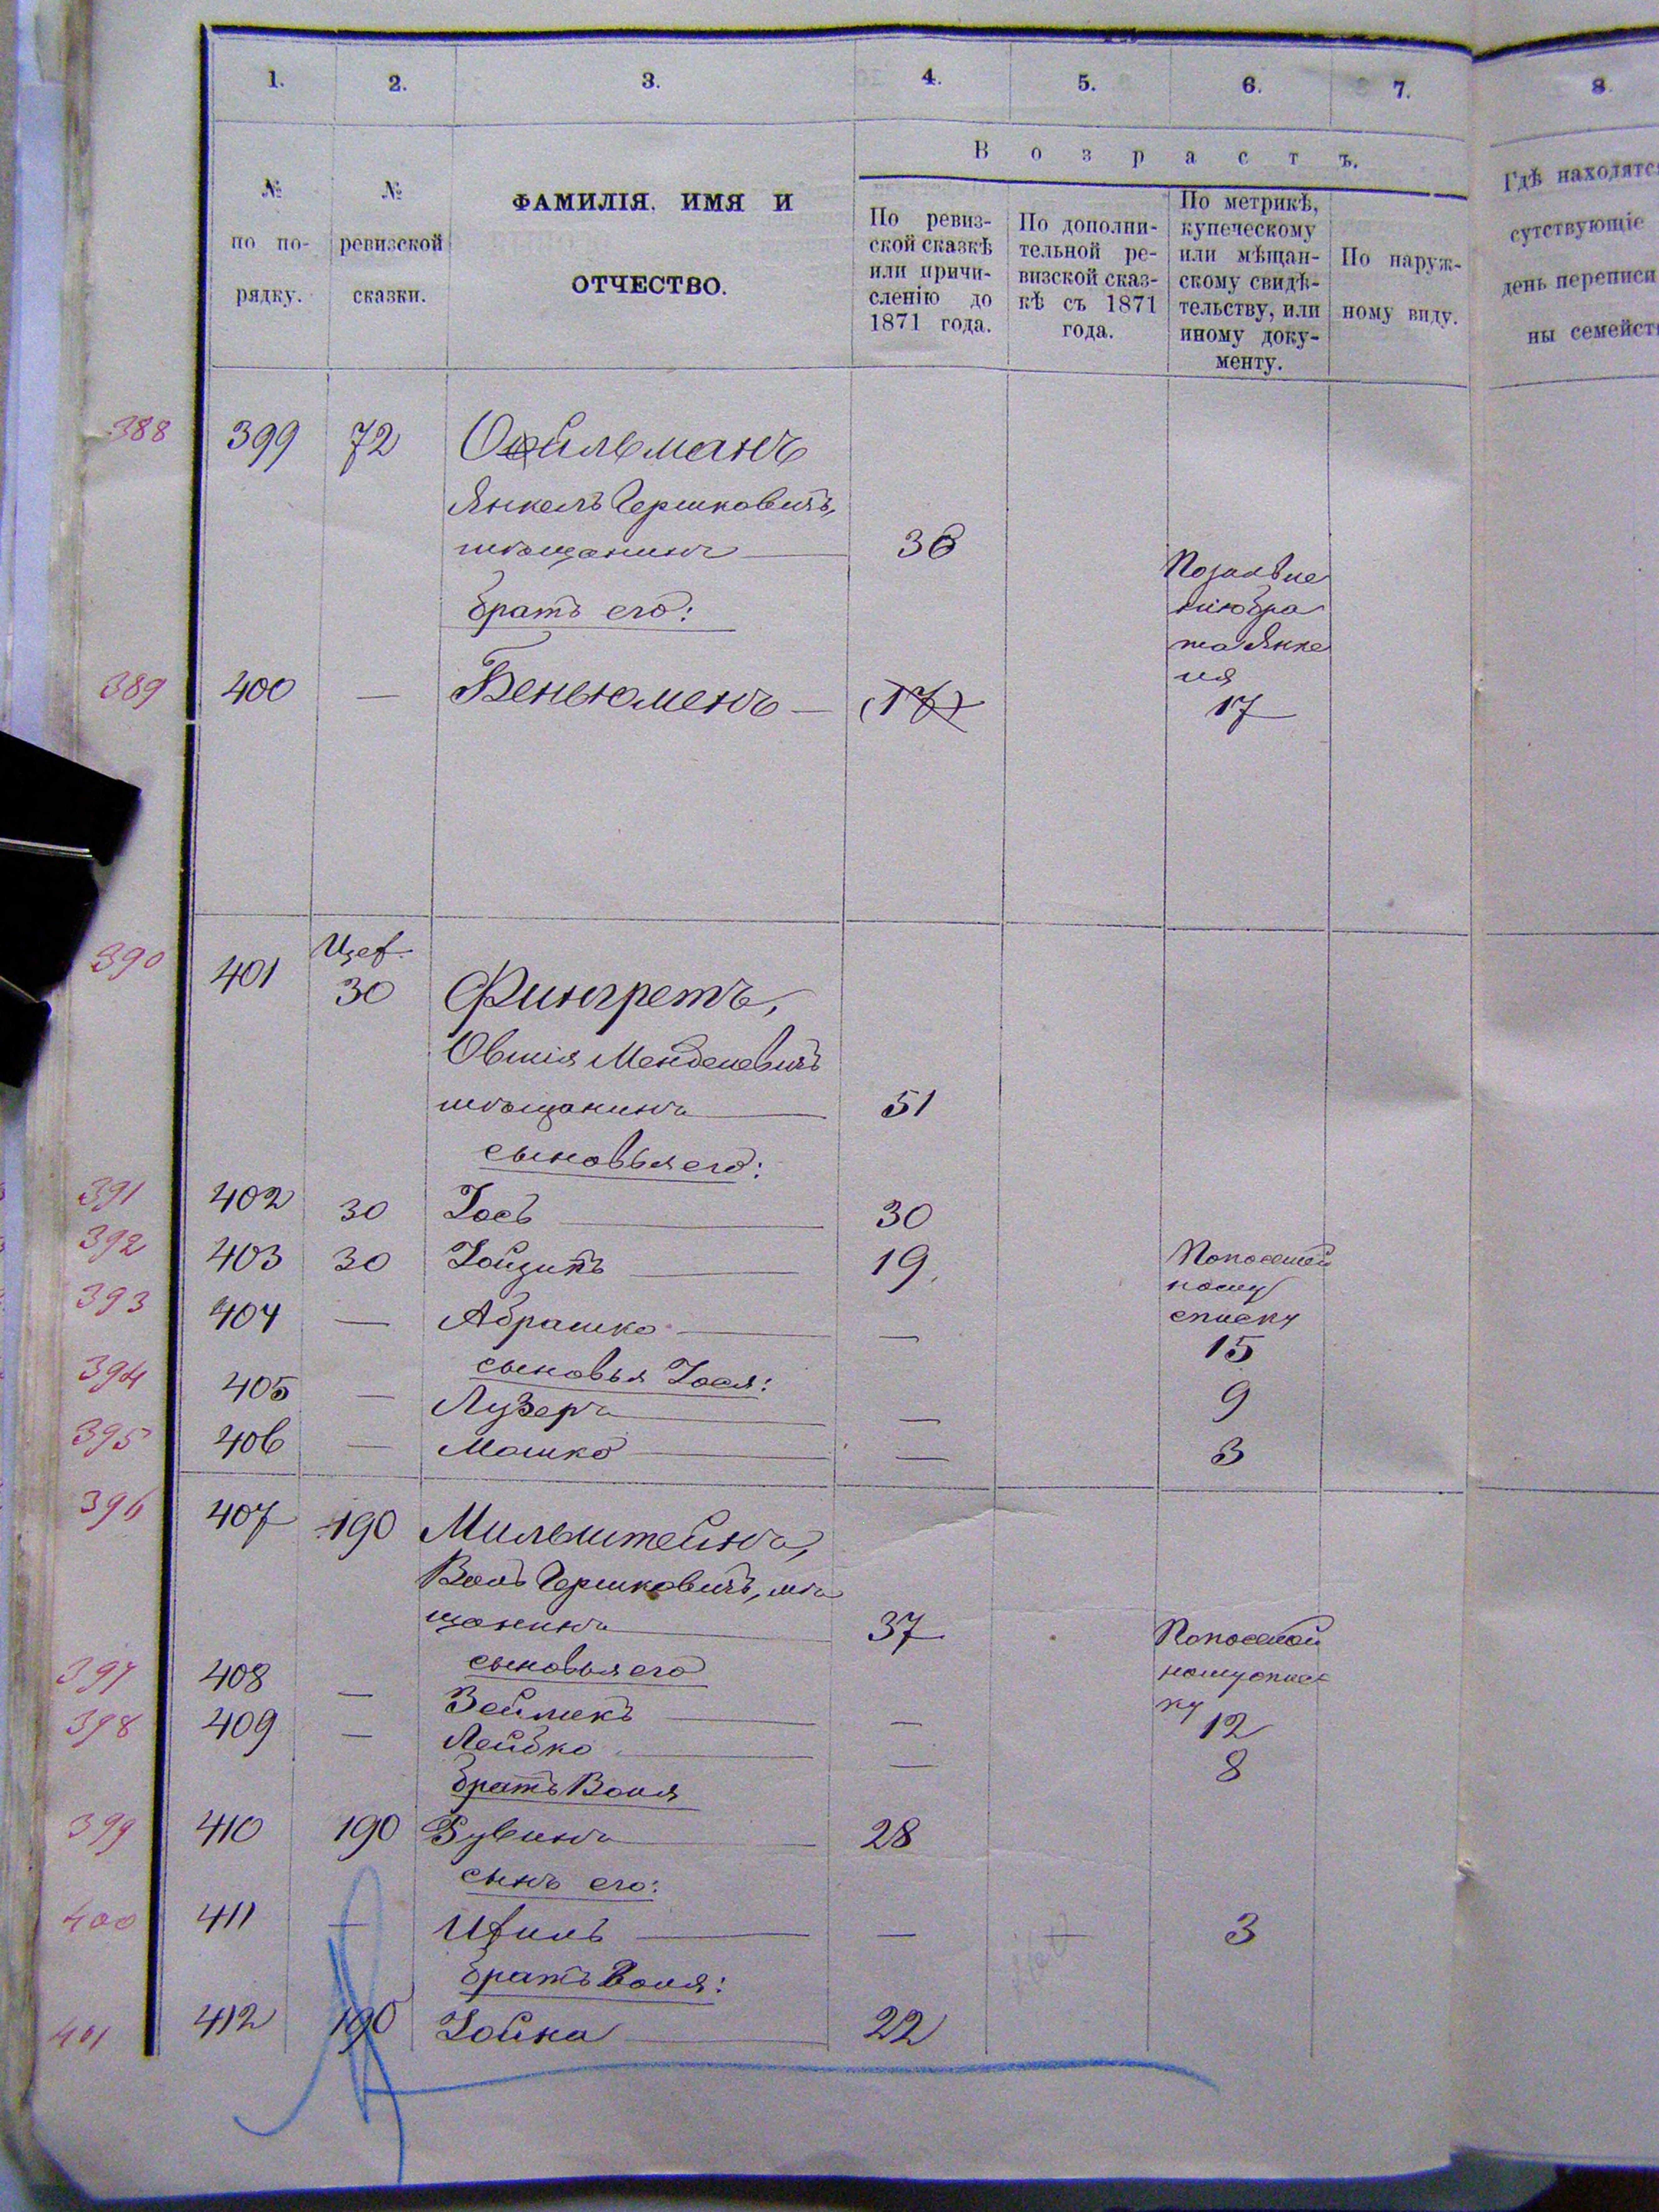 1. 2. 3. 4. 5. 6. 7. 8.
№ по по- рядку.
№ ревизской сказки.
ФАМИЛІЯ, ИМЯ И
ОТЧЕСТВО.
Возрастъ.
По ревиз-
ской сказкѣ
или причи-
сленію до
1871 года.
По дополни-
тельной ре-
визской сказ-
кѣ съ 1871
года.
По метрикѣ,
купеческому
или мѣщан-
скому свидѣ-
тельству, или
иному доку-
менту.
По наруж-
ному виду.
Гдѣ находятс
сутствующіе
день переписи
ны семейст
388 399 72 Ойльманъ
Янкель Гершковичъ,
мѣщанинъ 36
братъ его:
По заявле
нію бра
та Янке
ля
389 400 — Беньюменъ — (17) 17
390 401 30 Фингретъ,
Овшія Менделевичъ
мѣщанинъ 51
сыновья его:
391 402 30 Іось 30
392 403 30 Іойзипъ 19
По посемей
ному
списку
393 404 — Абрашко — 15
сыновья Іося:
394 405 — Лузеръ — 9
395 406 — Мошко — 3
396 407 190 Мильштейнъ,
Воль Гершковичъ, мѣ
щанинъ 37
По посемей
ному спис
ку
сыновья его
397 408 — Зейликъ — 12
398 409 — Лейбко — 8
братъ Воля
399 410 190 Рувинъ 28
сынъ его:
400 411 — — — 3
братъ Воля:
401 412 190 Іойна 22